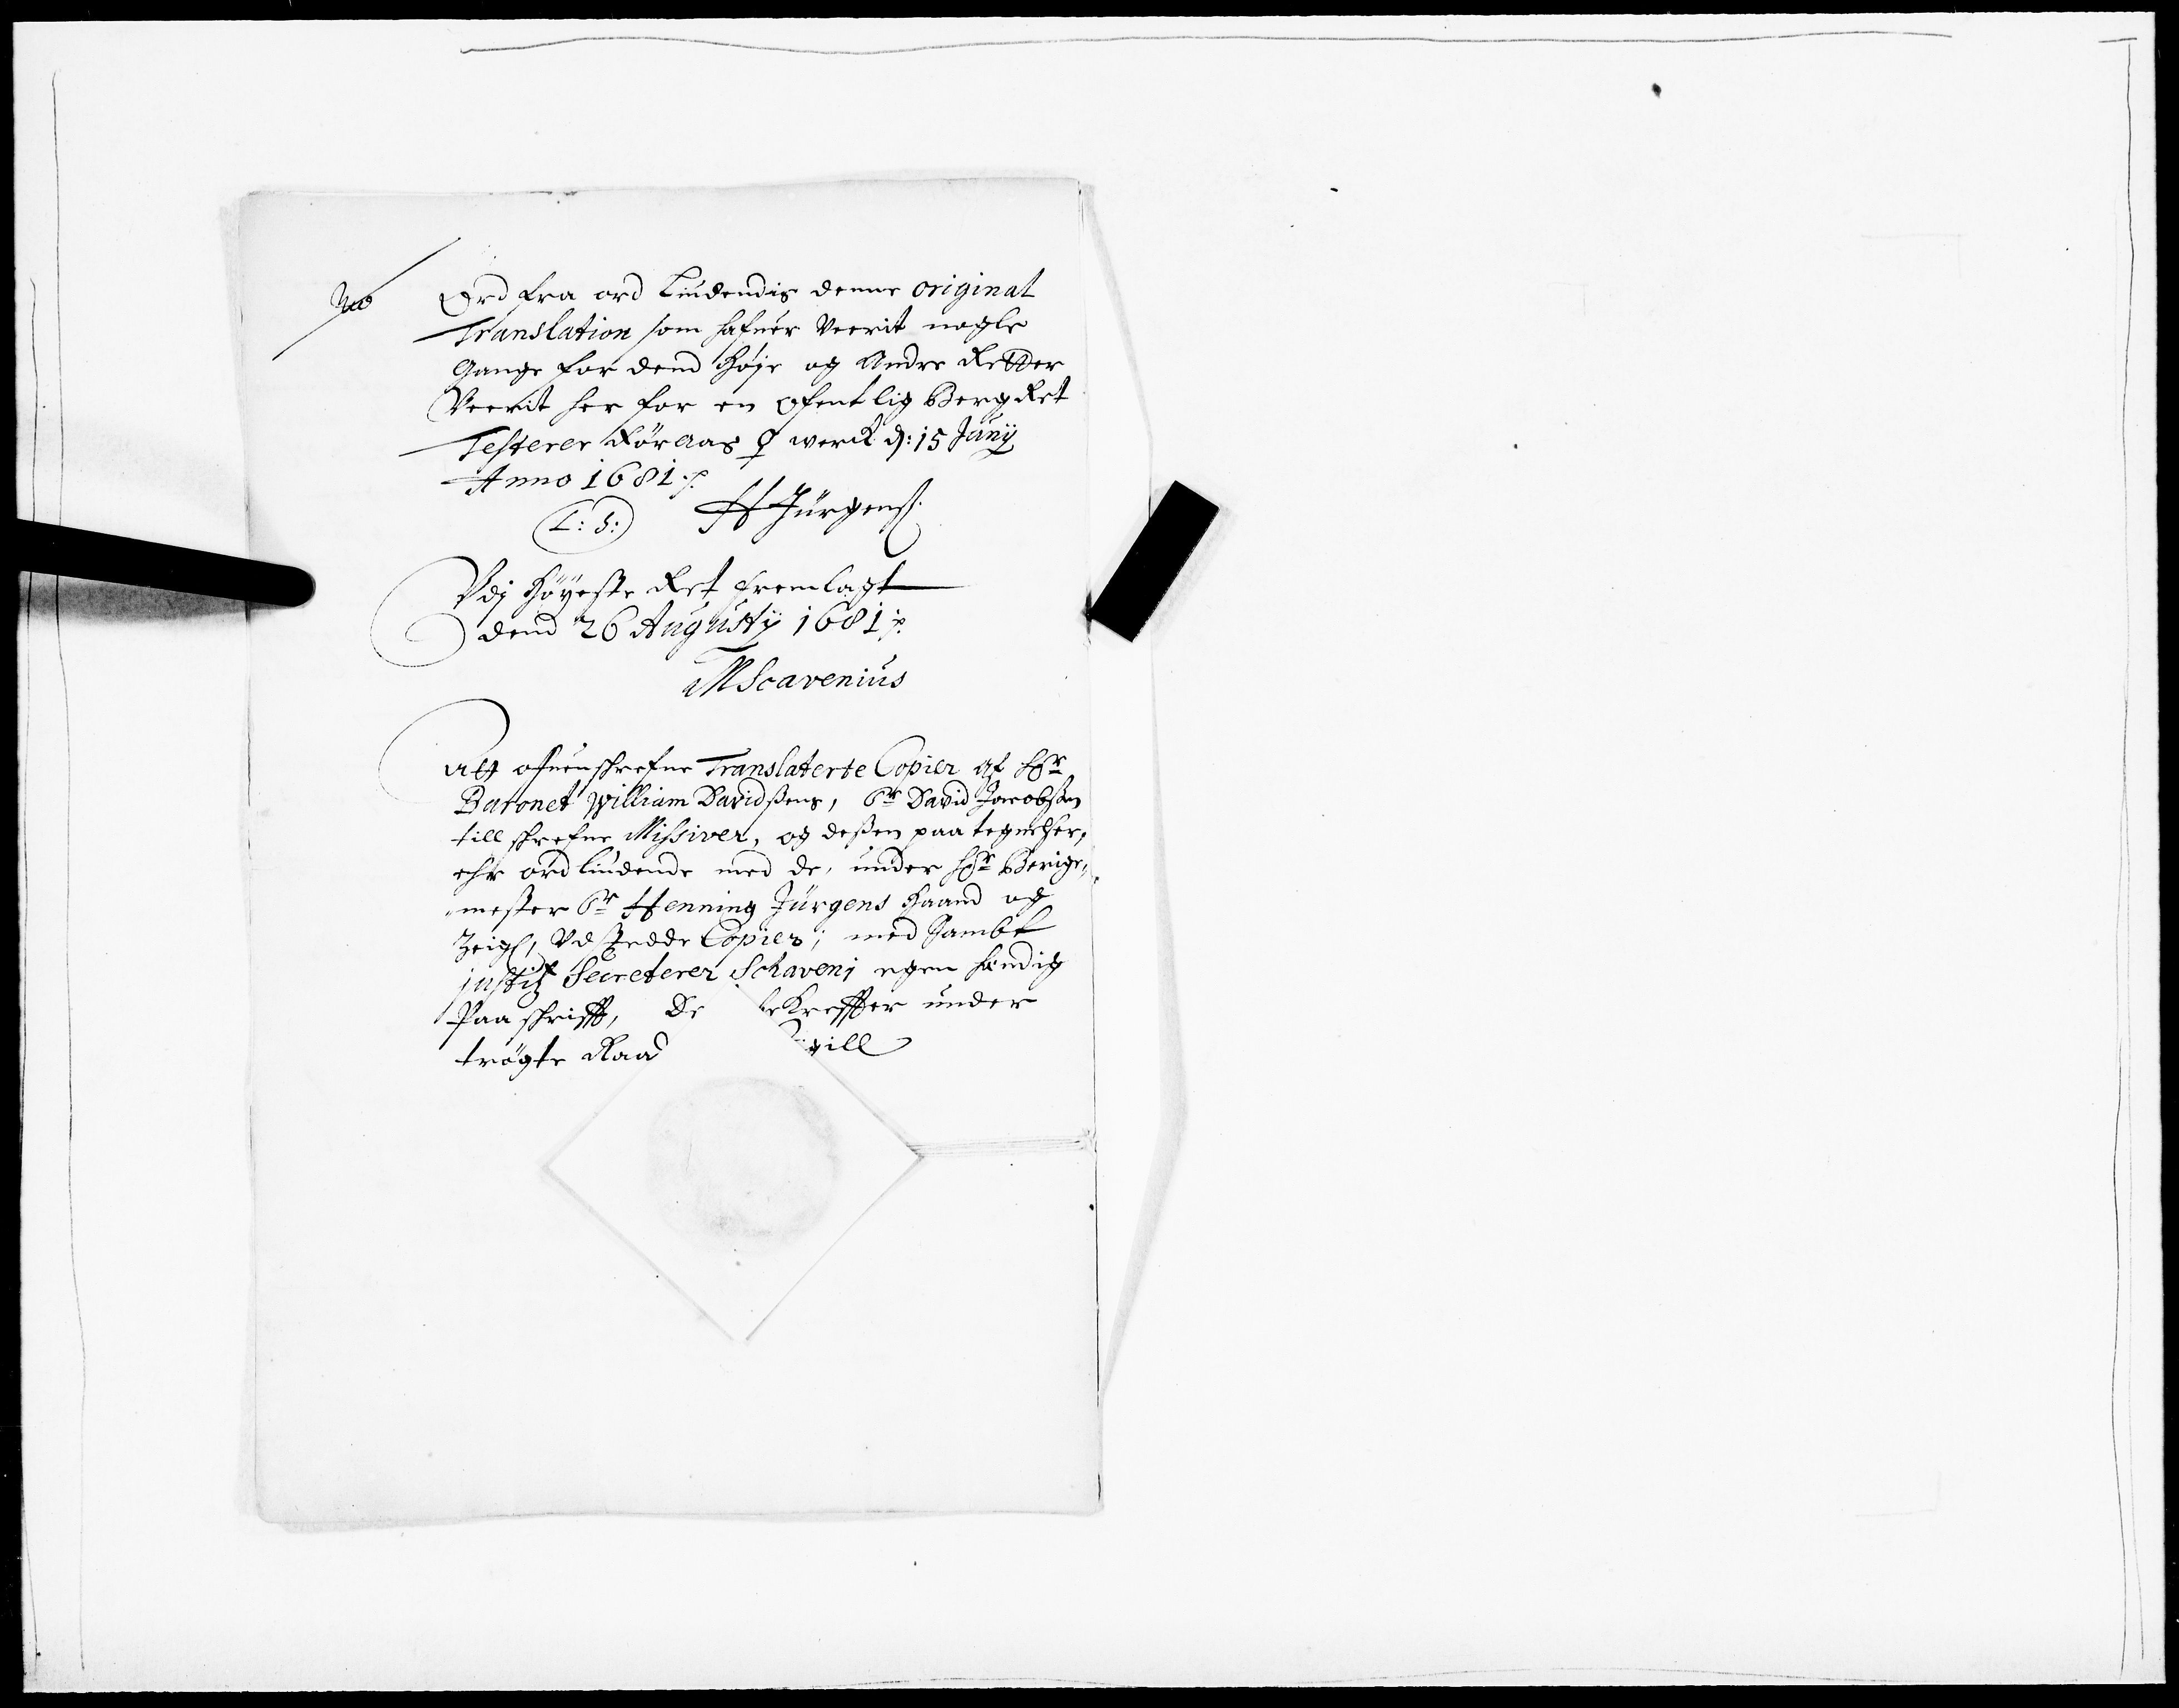 Ord fra ord Liudendis denne original
Translation som hafuer Veerit nogle
Gange for dend høje og Andre Retter
Veerit her for en Ofentlig BergRet
Testerer Röraas ♀ werck d: 15 Junij
Anno 1681 ./.
L: S: H Jürgens
Vdj Höyeste Ret fremlagt
dend 26 Augustij 1681 ./.
M Scavenius
Att ofuenschrefne Translaterte Copier af Hr
Baronet William Davidßens, Sr David Jacobsen
till schrefne Missiver, og deßen paategnelser,
ehr ordliudende med de, under Hr Berige„
„mester Sr Henning Jürgens Haand og
Zeigl, Vdstedde Copier; med Sambt
justitz Secreterer Schavenj egen hændig
Paaschrifft, De bekreffter under
trögte Raad